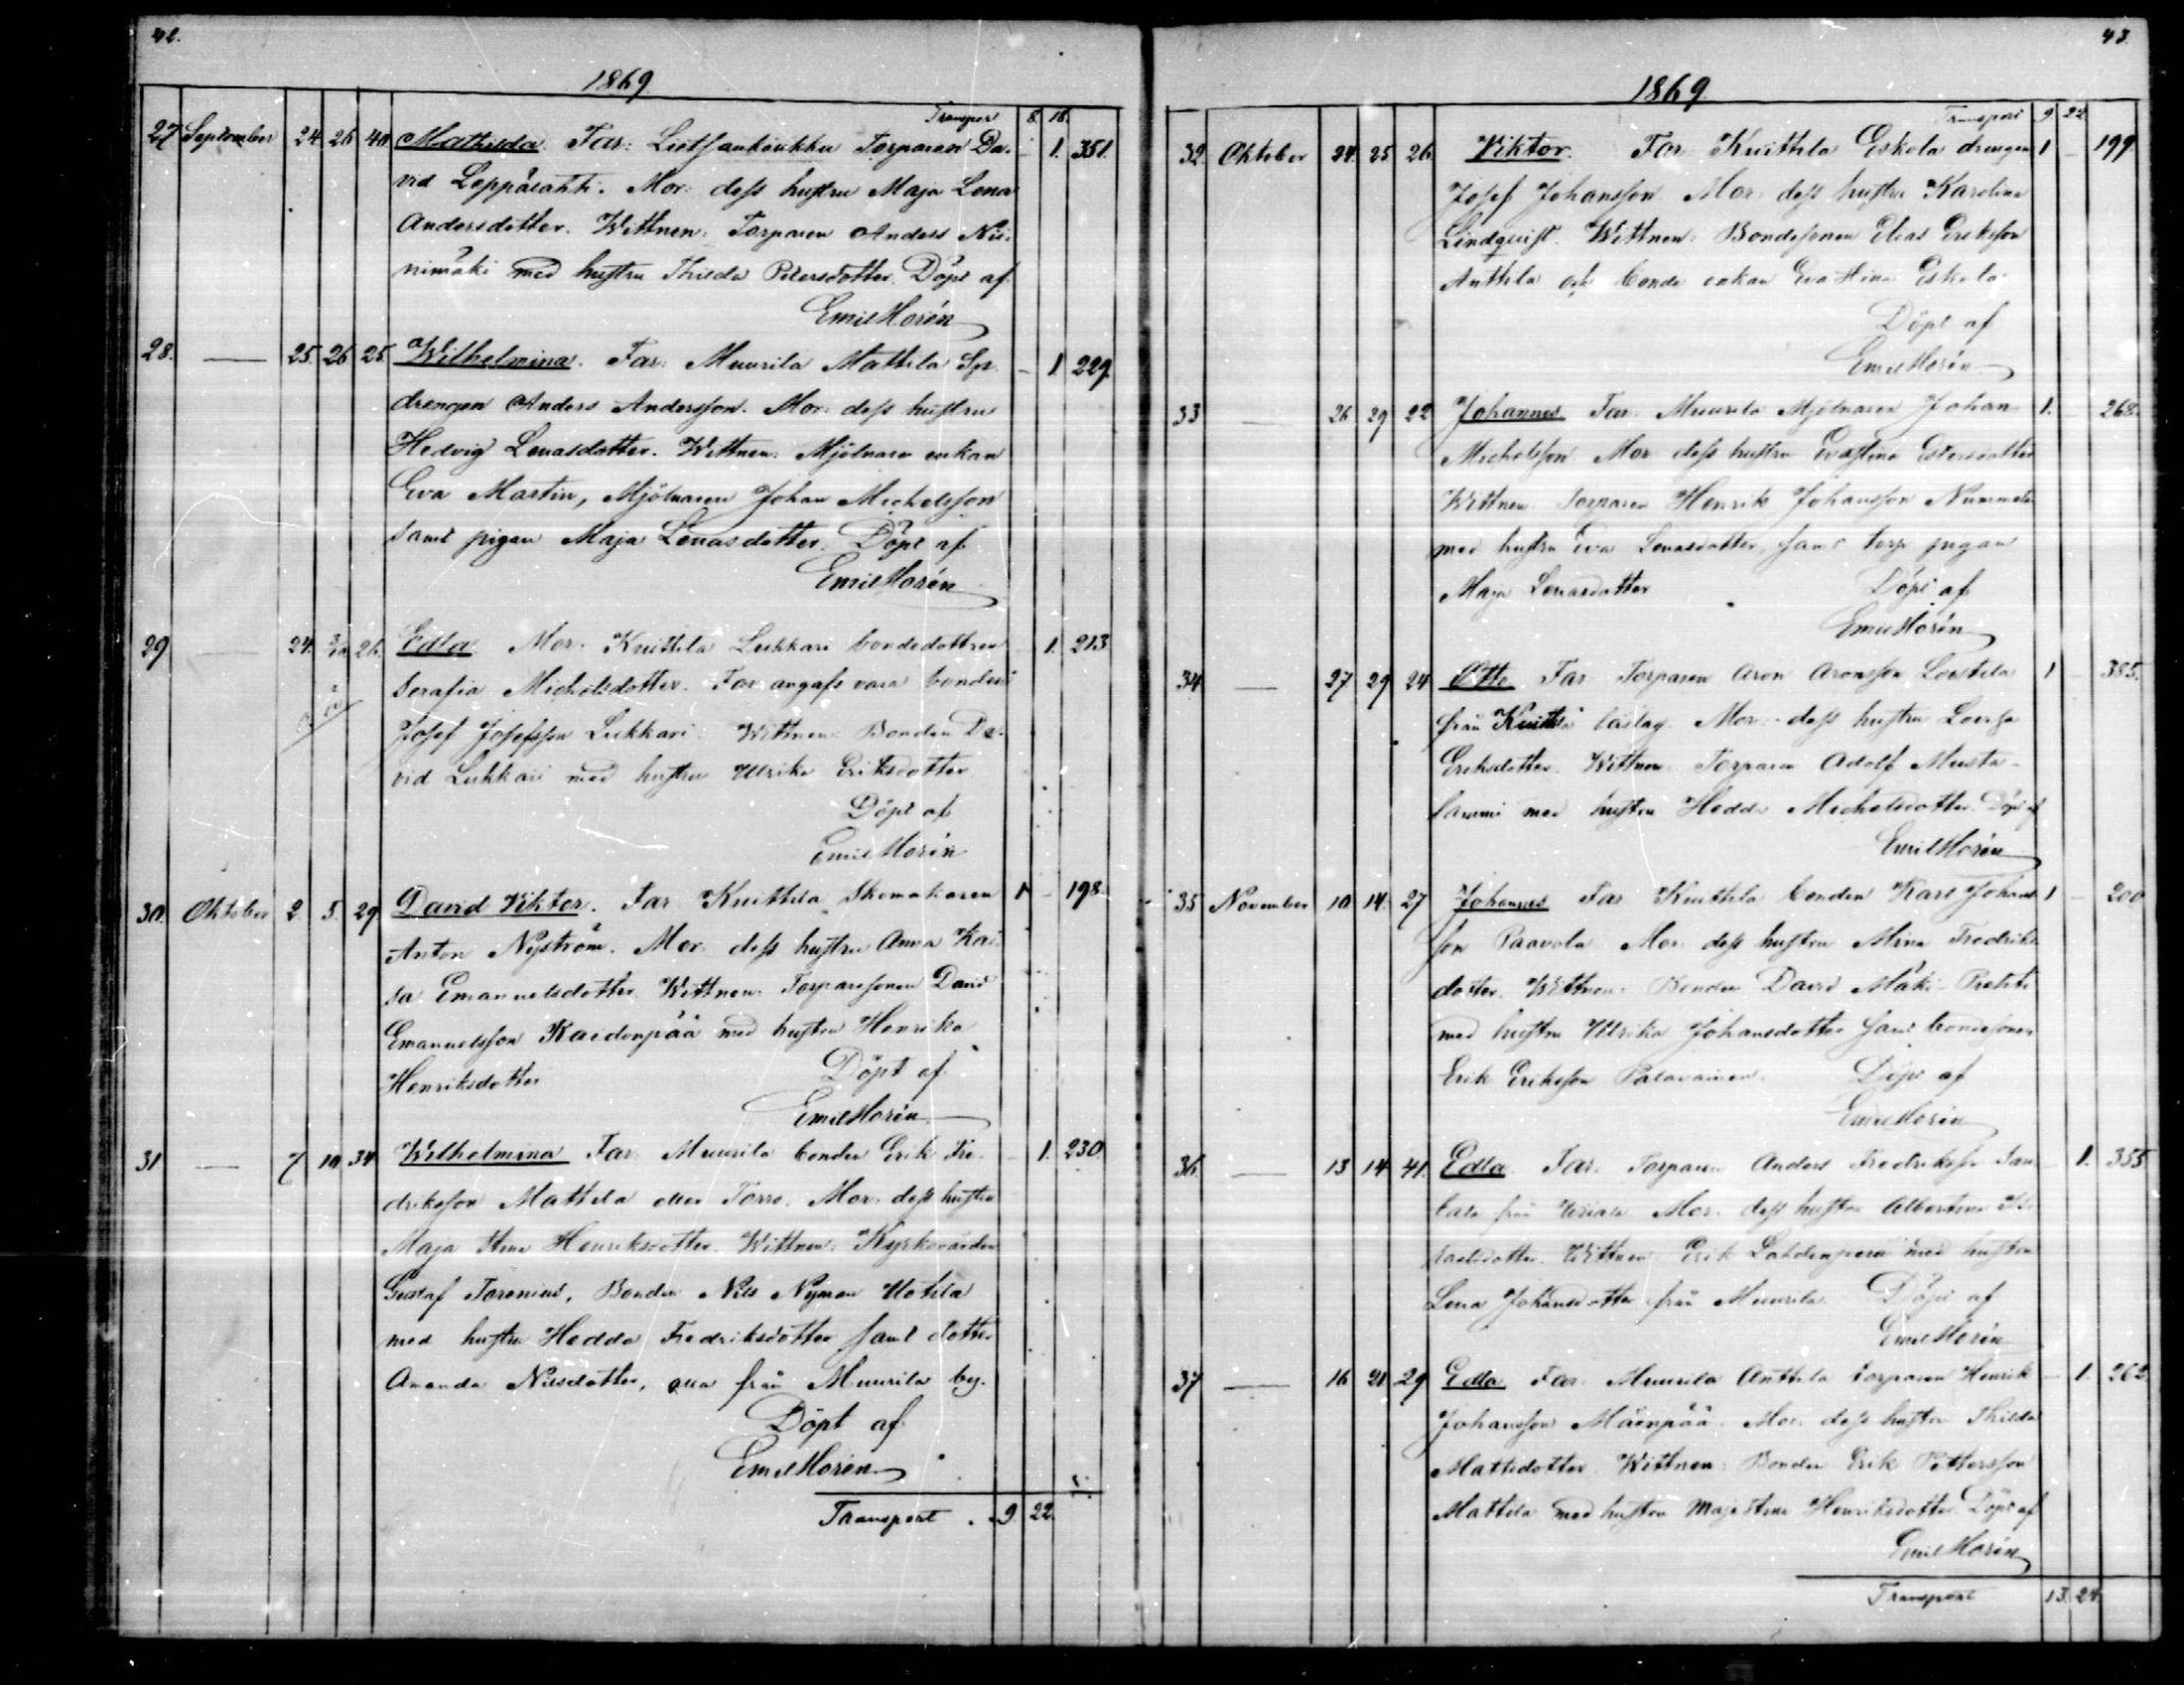 42.
1869.
Transport 8. 18.
27 September 24 26 40 Mathilda. Far: Lietsankoukku Torparen Da- – 1. 351.
vid Leppälahti. Mor: dess hustru Maja Lena
Andersdotter. Wittnen: Torparen Anders Nii-
nimäki med hustru Thilda Petersdotter. Döpt af
Emil Horén
28. — 25. 26 25 Wilhelmina. Far: Muurila Mattila Spr. – 1 229.
drengen Anders Andersson. Mor: dess hustru
Hedvig Lenasdotter. Wittnen: Mjölnare enkan
Eva Martin, Mjölnaren Johan Michelsson
samt pigan Maja Lenasdotter. Döpt af
Emil Horén
29 — 24. 3/10 26. Edla. Mor: Knuttila Lukkari bondedottren 1. 213
Serafia Michelsdotter. Far angafs vara bonden
Josef Josefsson Lukkari. Wittnen: Bonden Da-
vid Lukkari med hustru Ulrika Eriksdotter
Döpt af
Emil Horén
30. Oktober 2. 5. 29 David Viktor. Far: Knuttila Skomakaren 1 – 198.
Anton Nyström. Mor: dess hustru Anna Kai-
sa Emanuelsdotter. Wittnen: Torparesonen David
Emanuelsson Kaidenpää med hustru Henrika
Henriksdotter Döpt af
Emil Horén
31 — 7 10 34 Wilhelmina Far: Muurila bonden Erik Fre- – 1. 230.
driksson Mattila eller Törrö. Mor: dess hustru
Maja Stina Henriksdotter. Wittnen: Kyrkovärden
Gustaf Torenius, Bonden Nils Nyman Uotila
med hustru Hedda Fredriksdotter samt dotter
Amanda Nilsdotter, alla från Muurila by.
Döpt af
Emil Horén
Transport . 9 22.
43.
1869.
Transport 9 22
32. Oktober 24 25 26. Viktor. Far Knuttila Eskola drengen 1 – 199.
Josef Johansson. Mor: dess hustru Karolina
Lindqvist. Wittnen: Bondesonen Elias Eriksson
Anttila och bonde enkan Eva Stina Eskola
Döpt af
Emil Horén
33 — 26 29 22 Johannes Far: Muurila Mjölnaren Johan 1. 268.
Michelsson Mor: dess hustru Evastina Estersdotter
Wittnen Torparen Henrik Johansson Nummela
med hustru Eva Lenasdotter, samt torp pigan
Maja Lenasdotter Döpt af
Emil Horén
34 — 27 29 24 Otto Far Torparen Aron Aronsson 1 – 385.
från Knuttila Mor: dess hustru Lovisa
Eriksdotter. Wittnen: Torparen Adolf Musta-
lammi med hustru Hedda Michelsdotter. Döpt af
Emil Horén
35 November 10 14. 27 Johannes Far Knuttila bonden Karl Johans- 1 – 200
son Paavola Mor: dess hustru Mina Fredriks-
dotter. Wittnen: Bonden David Mäki-Prehti
med hustru Ulrika Johansdotter samt bondesonen
Erik Eriksson Palavainen. Döpt af
Emil Horén
36. — 13 14 41. Edla. Far: Torparen Anders Fredriksson 1. 355
från Urjala. Mor: dess hustru Albertina
Wittnen: Erik Lahdenperä med hustru
Lena Johansdotter från Muurila. Döpt af
Emil Horén
37 — 16 21 29 Edla Far: Muurila Anttila torparen Henrik – 1. 262.
Johansson Mäenpää. Mor: dess hustru Thilda
Mattsdotter. Wittnen: Bonden Erik Pettersson
Mattila med hustru Maja Stina Henriksdotter. Döpt af
Emil Horén
Transport 13. 24.